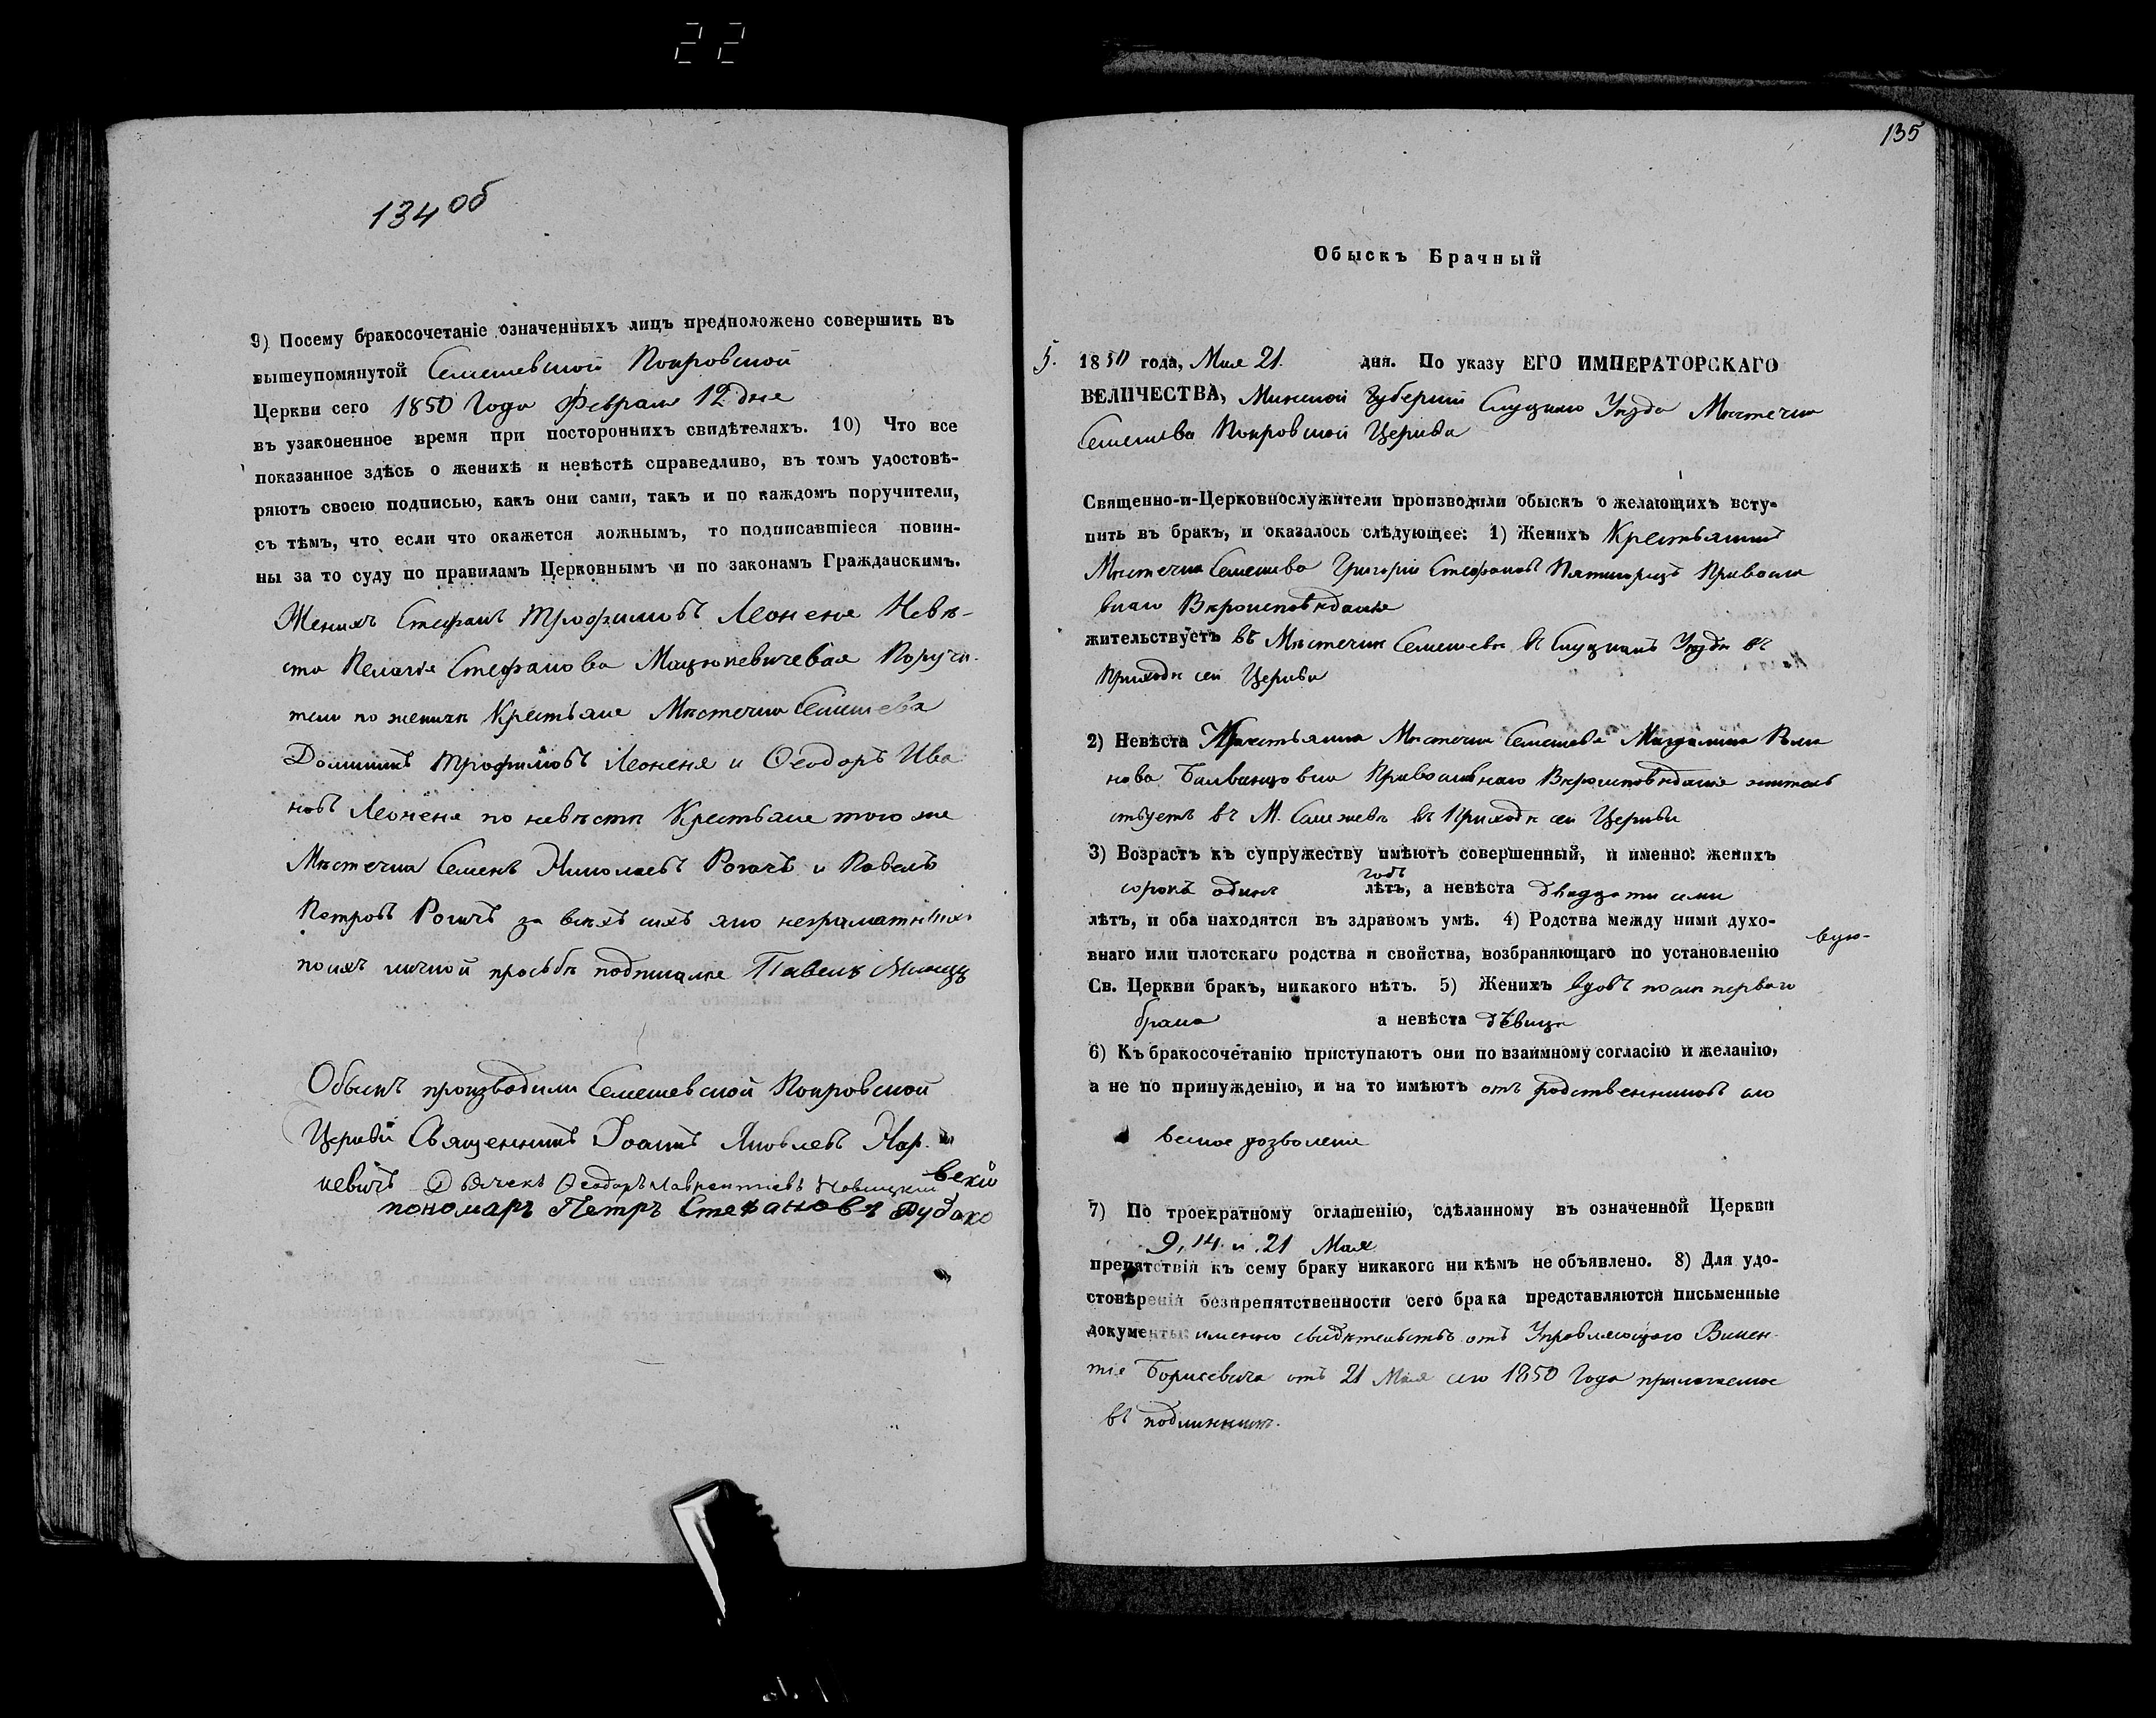 22
134 об
9) Посему бракосочетаніе означенныхъ лицъ предположено совершить въ
вышеупомянутой Семежевской Покровской
Церкви сего 1850 Года Февраля 12 дня
въ узаконенное время при постороннихъ свидѣтеляхъ. 10) Что все
показанное здѣсь о женихѣ и невѣстѣ справедливо, въ томъ удостовѣ-
ряютъ своею подписью, какъ они сами, такъ и по каждомъ поручители,
съ тѣмъ, что если что окажется ложнымъ, то подписавшіеся повин-
ны за то суду по правиламъ Церковнымъ и по законамъ Гражданскимъ.
Женихъ Стефанъ Трофимовъ Леоненя Невѣ-
ста Пелагія Стефанова Мацюкевичевая Поручи-
тели по женихѣ Крестьяне Мѣстечка Семежева
Доминикъ Трофимовъ Леоненя и Ѳеодоръ Ива
новъ Леоненя по невѣстѣ Крестьяне того же
Мѣстечка Семенъ Николаевъ Рогачъ и Павелъ
Петровъ за всѣхъ сихъ яко неграматныхъ
по ихъ личной просьбѣ подписался Павелъ
Обыскъ производили Семежевской Покровской
Церкви Священникъ Іоаннъ Яковлевъ
Дьячекъ Ѳеодоръ Лаврентіевъ Новицкій
пономаръ Петръ Стефановъ Рудако
вскій
135
Обыскъ Брачный
5. 1850 года, Мая 21. дня. По указу ЕГО ИМПЕРАТОРСКАГО
ВЕЛИЧЕСТВА, Минской Губерніи Слуцкаго Уѣзда Мѣстечка
Семежева Покровской Церкви
Священно-и-Церковнослужители производили обыскъ о желающихъ всту-
пить въ бракъ, и оказалось слѣдующее: 1) Женихъ Крестьянинъ
Мѣстечка Семежева Григорій Стефановъ Православ
наго Вѣроисповѣданія
жительствуетъ въ Мѣстечкѣ Семежевѣ въ Слуцкомъ Уѣздѣ въ
Приходѣ сей Церкви
2) Невѣста Крестьянка Мѣстечка Семежева Магдалина
нова Православнаго Вѣроисповѣданія житель
ствуетъ въ М. Семежевѣ въ Приходѣ сей Церкви
3) Возрастъ къ супружеству имѣютъ совершенный, и именно: женихъ
сорокъ одинъ годъ лѣтъ, а невѣста двадцати семи
лѣтъ, и оба находятся въ здравомъ умѣ. 4) Родства между ними духо-
внаго или плотскаго родства и свойства, возбраняющаго по установленію
Св. Церкви бракъ, никакого нѣтъ. 5) Женихъ вдовъ послѣ перваго
брака а невѣста дѣвица
6) Къ бракосочетанію приступаютъ они по взаимному согласію и желанію,
а не по принужденію, и на то имѣютъ отъ родственниковъ сло
весное дозволеніе
7) По троекратному оглашенію, сдѣланному въ означенной Церкви
9, 14. и 21 Мая
препятствія къ сему браку никакого ни кѣмъ не объявлено. 8) Для удо-
стовѣренія безпрепятственности сего брака представляются письменные
документы: именно свидѣтельство отъ Управляющаго Викен-
тія Борисевича отъ 21 Мая сего 1850 Года прилагаемое
въ подлинникѣ.